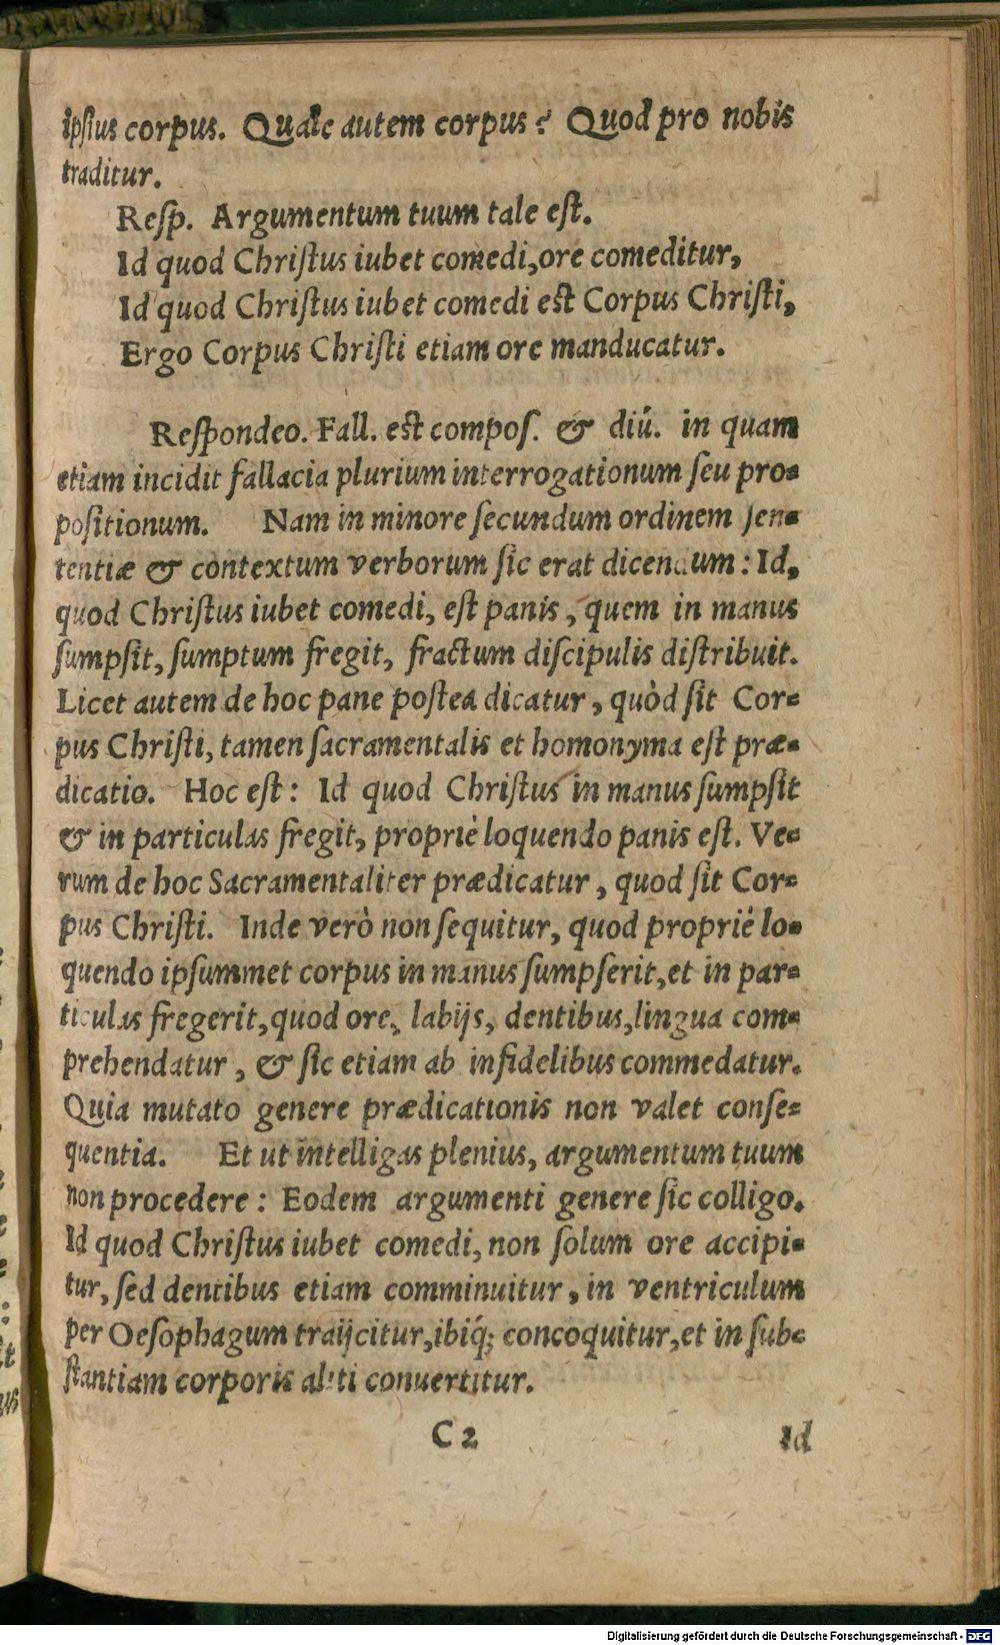 ipſius corpus. Quale autem corpus? Quod pro nobis
traditur.
Reſp. Argumentum tuum tale eſt.
Id quod Chriſtus iubet comedi, ore comeditur,
Id quod Chriſtus iubet comedi est Corpus Chriſti,
Ergo Corpus Chriſti etiam ore manducatur.
Reſpondeo. Fall. est compoſ. & diú. in quam
etiam incidit fallacia plurium interrogationum ſeu pro-
poſitionum. Nam in minore ſecundum ordinem ſen-
tentiæ & contextum verborum ſic erat dicendum: Id,
quod Chriſtus iubet comedi, eſt panis, quem in manus
ſumpſit, ſumptum fregit, fractum diſcipulis diſtribuit.
Licet autem de hoc pane poſtea dicatur, quòd ſit Cor-
pus Chriſti, tamen ſacramentalis et homonyma eſt præ-
dicatio. Hoc eſt: Id quod Chriſtus in manus ſumpſit
& in particulas fregit, propriè loquendo panis eſt. Ve-
rum de hoc Sacramentaliter prædicatur, quod ſit Cor-
pus Chriſti. Inde verò non ſequitur, quod propriè lo-
quendo ipſummet corpus in manus ſumpſerit, et in par-
ticulas fregerit, quod ore, labijs, dentibus, lingua com-
prehendatur, & ſic etiam ab infidelibus commedatur.
Quia mutato genere prædicationis non valet conſe-
quentia. Et ut intelligas plenius, argumentum tuum
non procedere: Eodem argumenti genere ſic colligo.
Id quod Chriſtus iubet comedi, non ſolum ore accipi-
tur, ſed dentibus etiam comminuitur, in ventriculum
per Oeſophagum traijcitur, ibiq́; concoquitur, et in ſub-
ſtantiam corporis aliti conuertitur.
C 2
Id
Digitalisierung gefördert durch die Deutsche Forschungsgemeinschaft - DFG